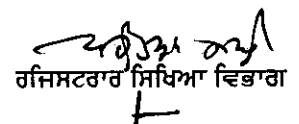 ਰਜਿਸਟਰਾਰ ਸਿਖਿਆ ਵਿਭਾਗ